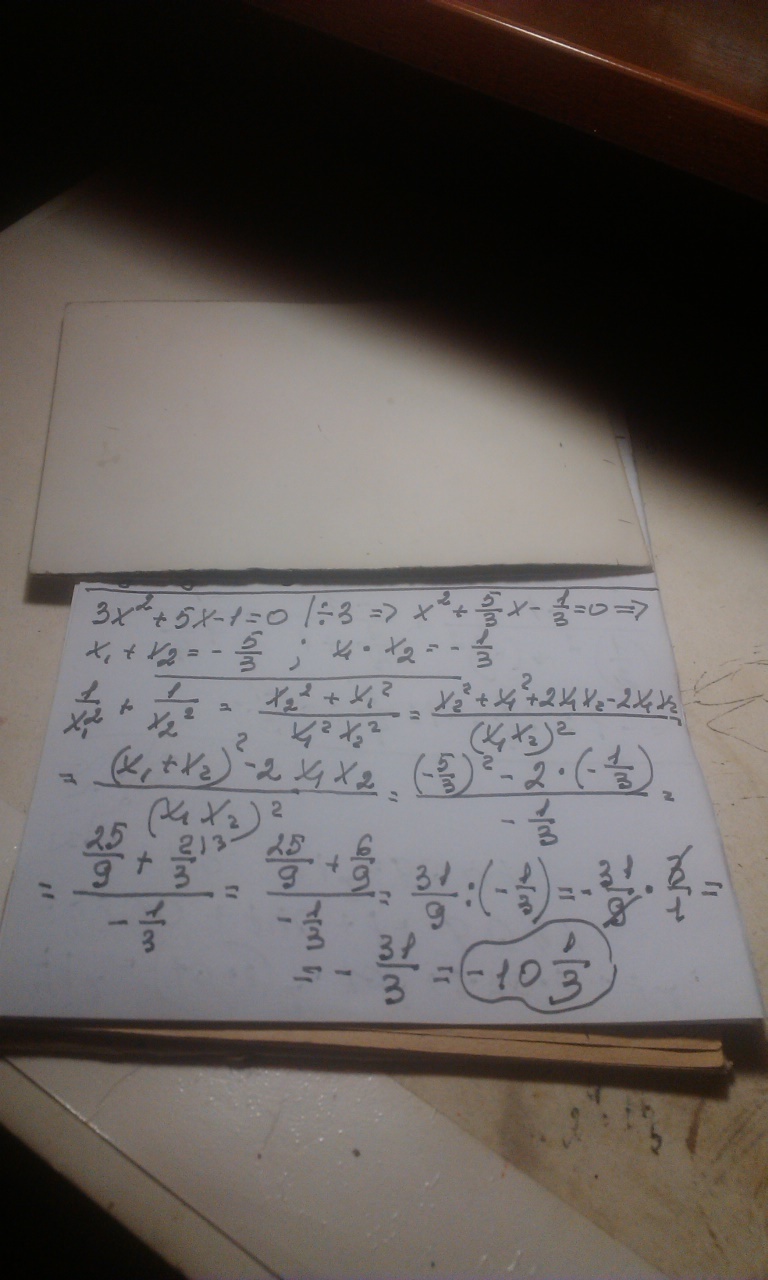 3x² + 5x - 1 = 0 | ÷3 => x² + 5/3 x - 1/3 = 0 =>
x₁ + x₂ = - 5/3 ; x₁ · x₂ = - 1/3
1/x₁² + 1/x₂² = (x₂² + x₁²)/(x₁² x₂²) = (x₂² + x₁² + 2x₁x₂ - 2x₁x₂)/(x₁x₂)² =
= ((x₁ + x₂)² - 2 x₁ x₂)/(x₁ x₂)² = ((-5/3)² - 2 · (-1/3))/(-1/3) =
= (25/9 + 2/3 ⁾³)/(-1/3) = (25/9 + 6/9)/(-1/3) = 31/9 : (-1/3) = - 31/9 · 3/1 =
= - 31/3 = -10 1/3